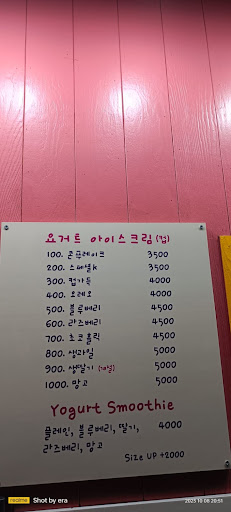 요거트 아이스크림(컵)
100. 콘플레이크 3500
200. 스페셜k 3500
300. 컵가득 4000
400. 오레오 4000
500. 블루베리 4500
600. 라즈베리 4500
700. 초코홀릭 4500
800. 생과일 5000
900. 생딸기 5000
1000. 망고 5000
Yogurt Smoothie
플레인, 블루베리, 딸기, 4000
라즈베리, 망고
Size UP +2000
realme Shot by era
2025.10.08 20:51